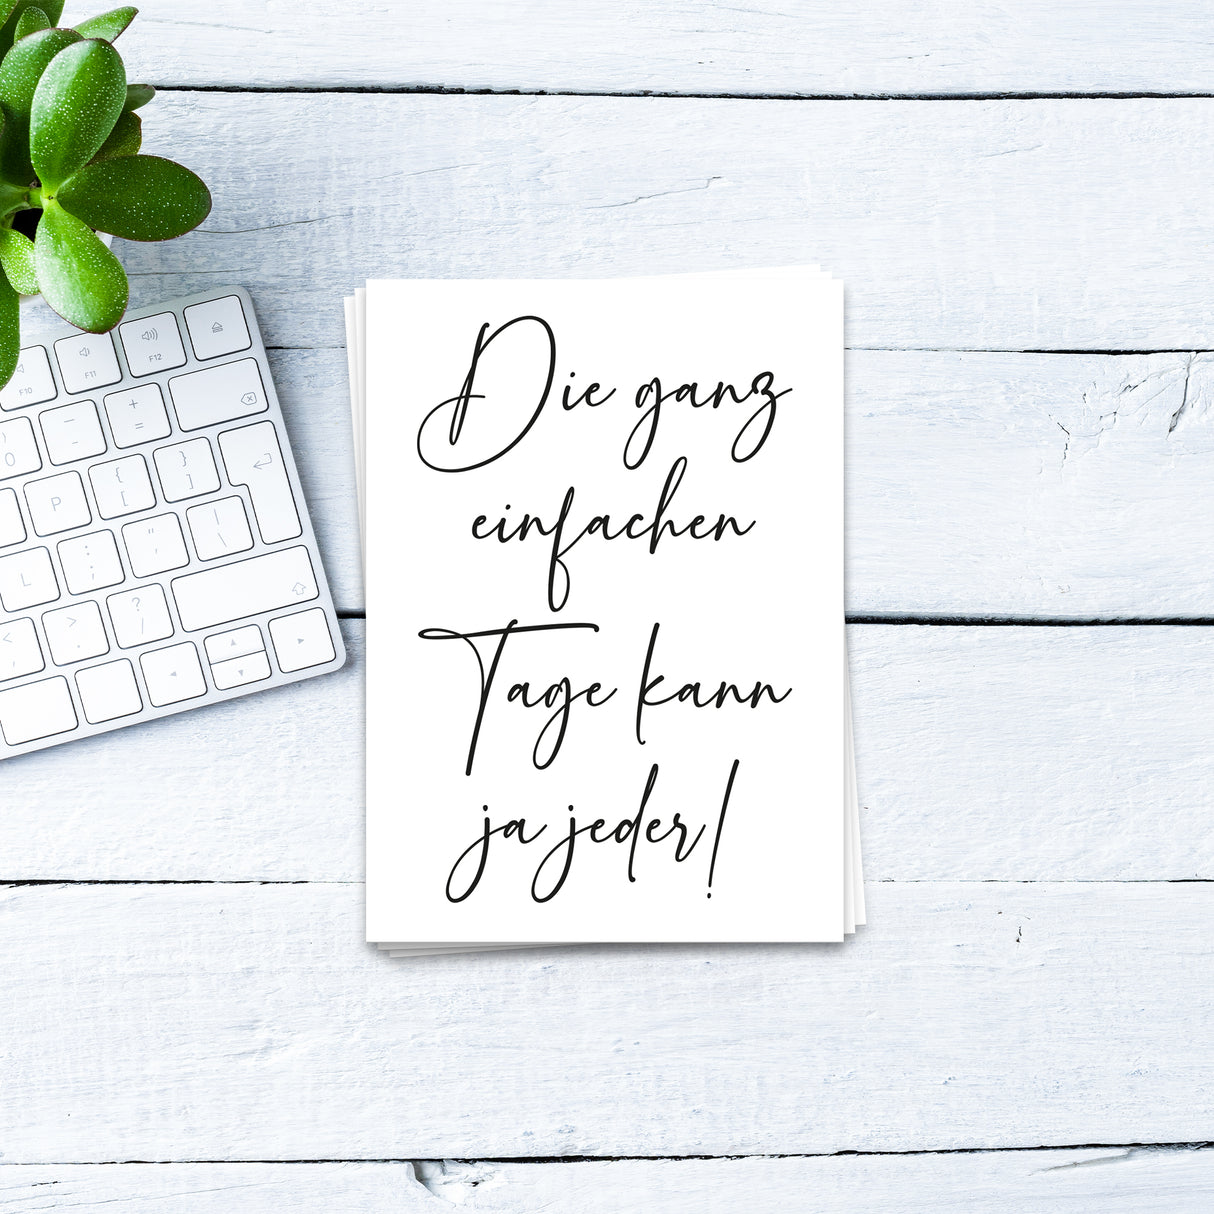 Die ganz
einfachen
Tage kann
ja jeder!
F10
F11
F12
+
=
0
P
{
[
}
]
L
:
;
"
'
|
\
<
,
>
.
?
/